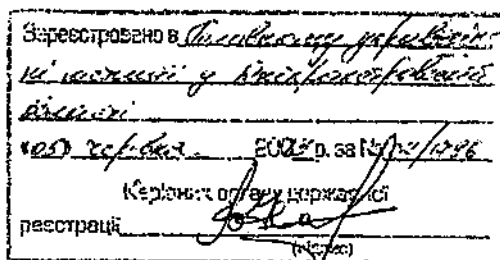 Зареєстровано в Головному управлін-
ні юстиції у Дніпропетровській
області
«05» червня 200 р. за №
Керівник органу державної
реєстрації
(підпис)